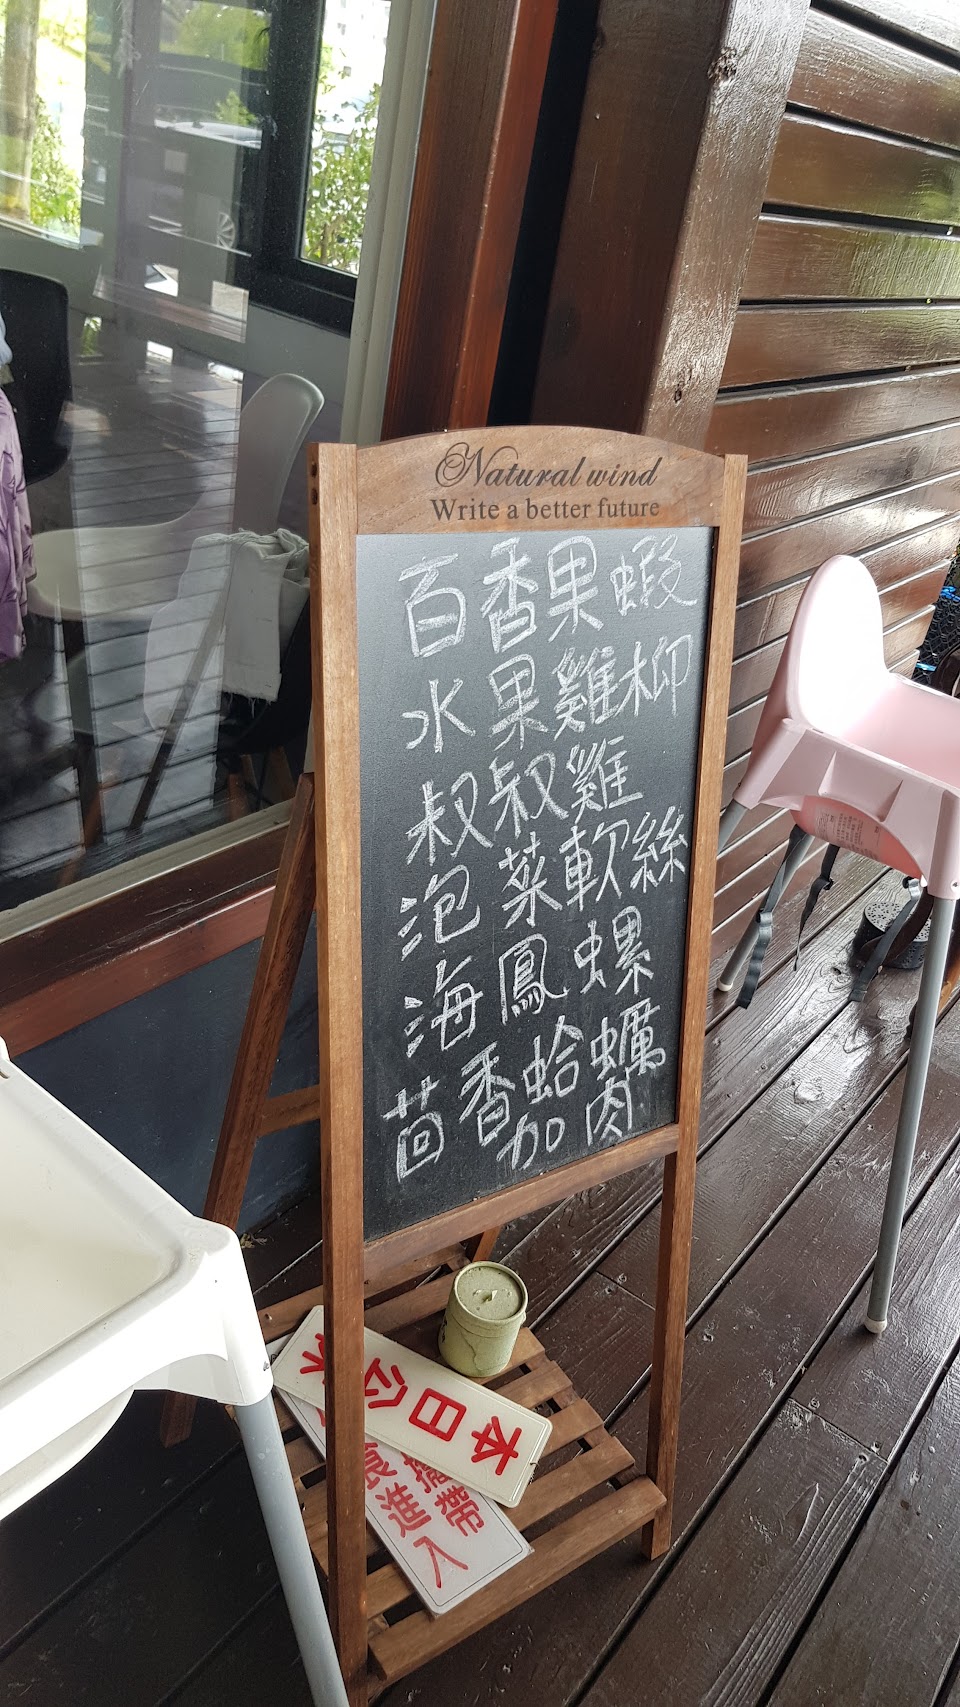 Natural wind
Write a better future
百香果蝦
水果雞柳
叔叔雞
泡菜軟絲
海鳳螺
茴香蛤蠣
加肉
本日公休
攜帶
食進入